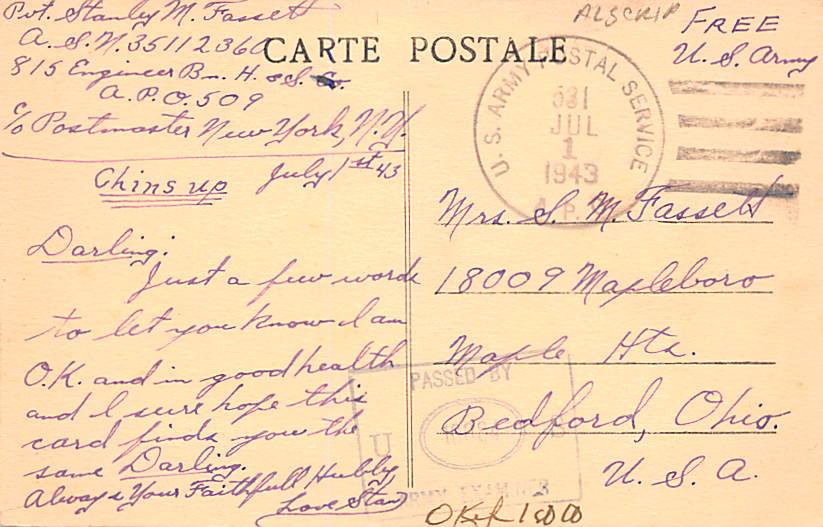 Pvt. Stanley M. Fassett
A.S.N. 35112360
815 Engineer Bn. H. & S. Co.
A.P.O. 509
c/o Postmaster New York, N.Y.
July 1st 43
Chins up
Darling:
Just a few words
to let you know I am
O.K. and in good health
and I sure hope this
card finds you the
same Darling.
Always Your Faithfull Hubby,
Love Stan
CARTE POSTALE
FREE
U.S. Army
U.S. ARMY POSTAL SERVICE
JUL
1
1943
A.P.
Mrs. S. M. Fassett
18009 Mapleboro
Maple Hts.
Bedford, Ohio.
U.S.A.
PASSED BY
U S
ARMY EXAMINER